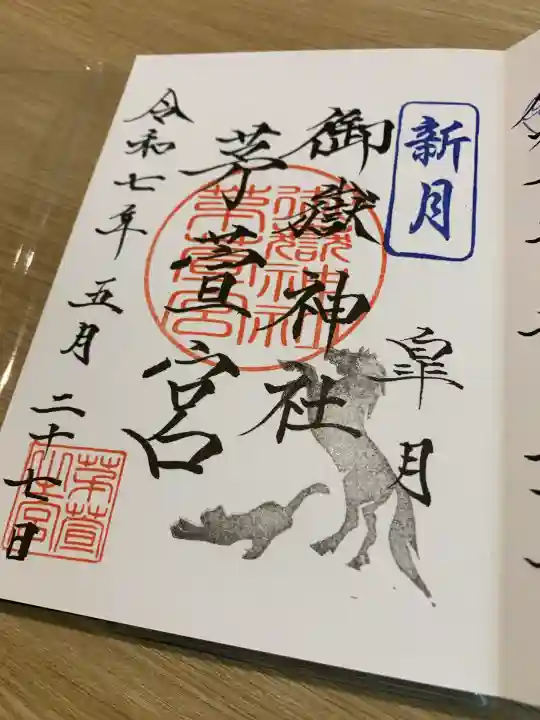 新月
皐月
御嶽神社
茅萱宮
令和七年五月二十七日
御嶽神社
茅萱宮
茅萱
之宮